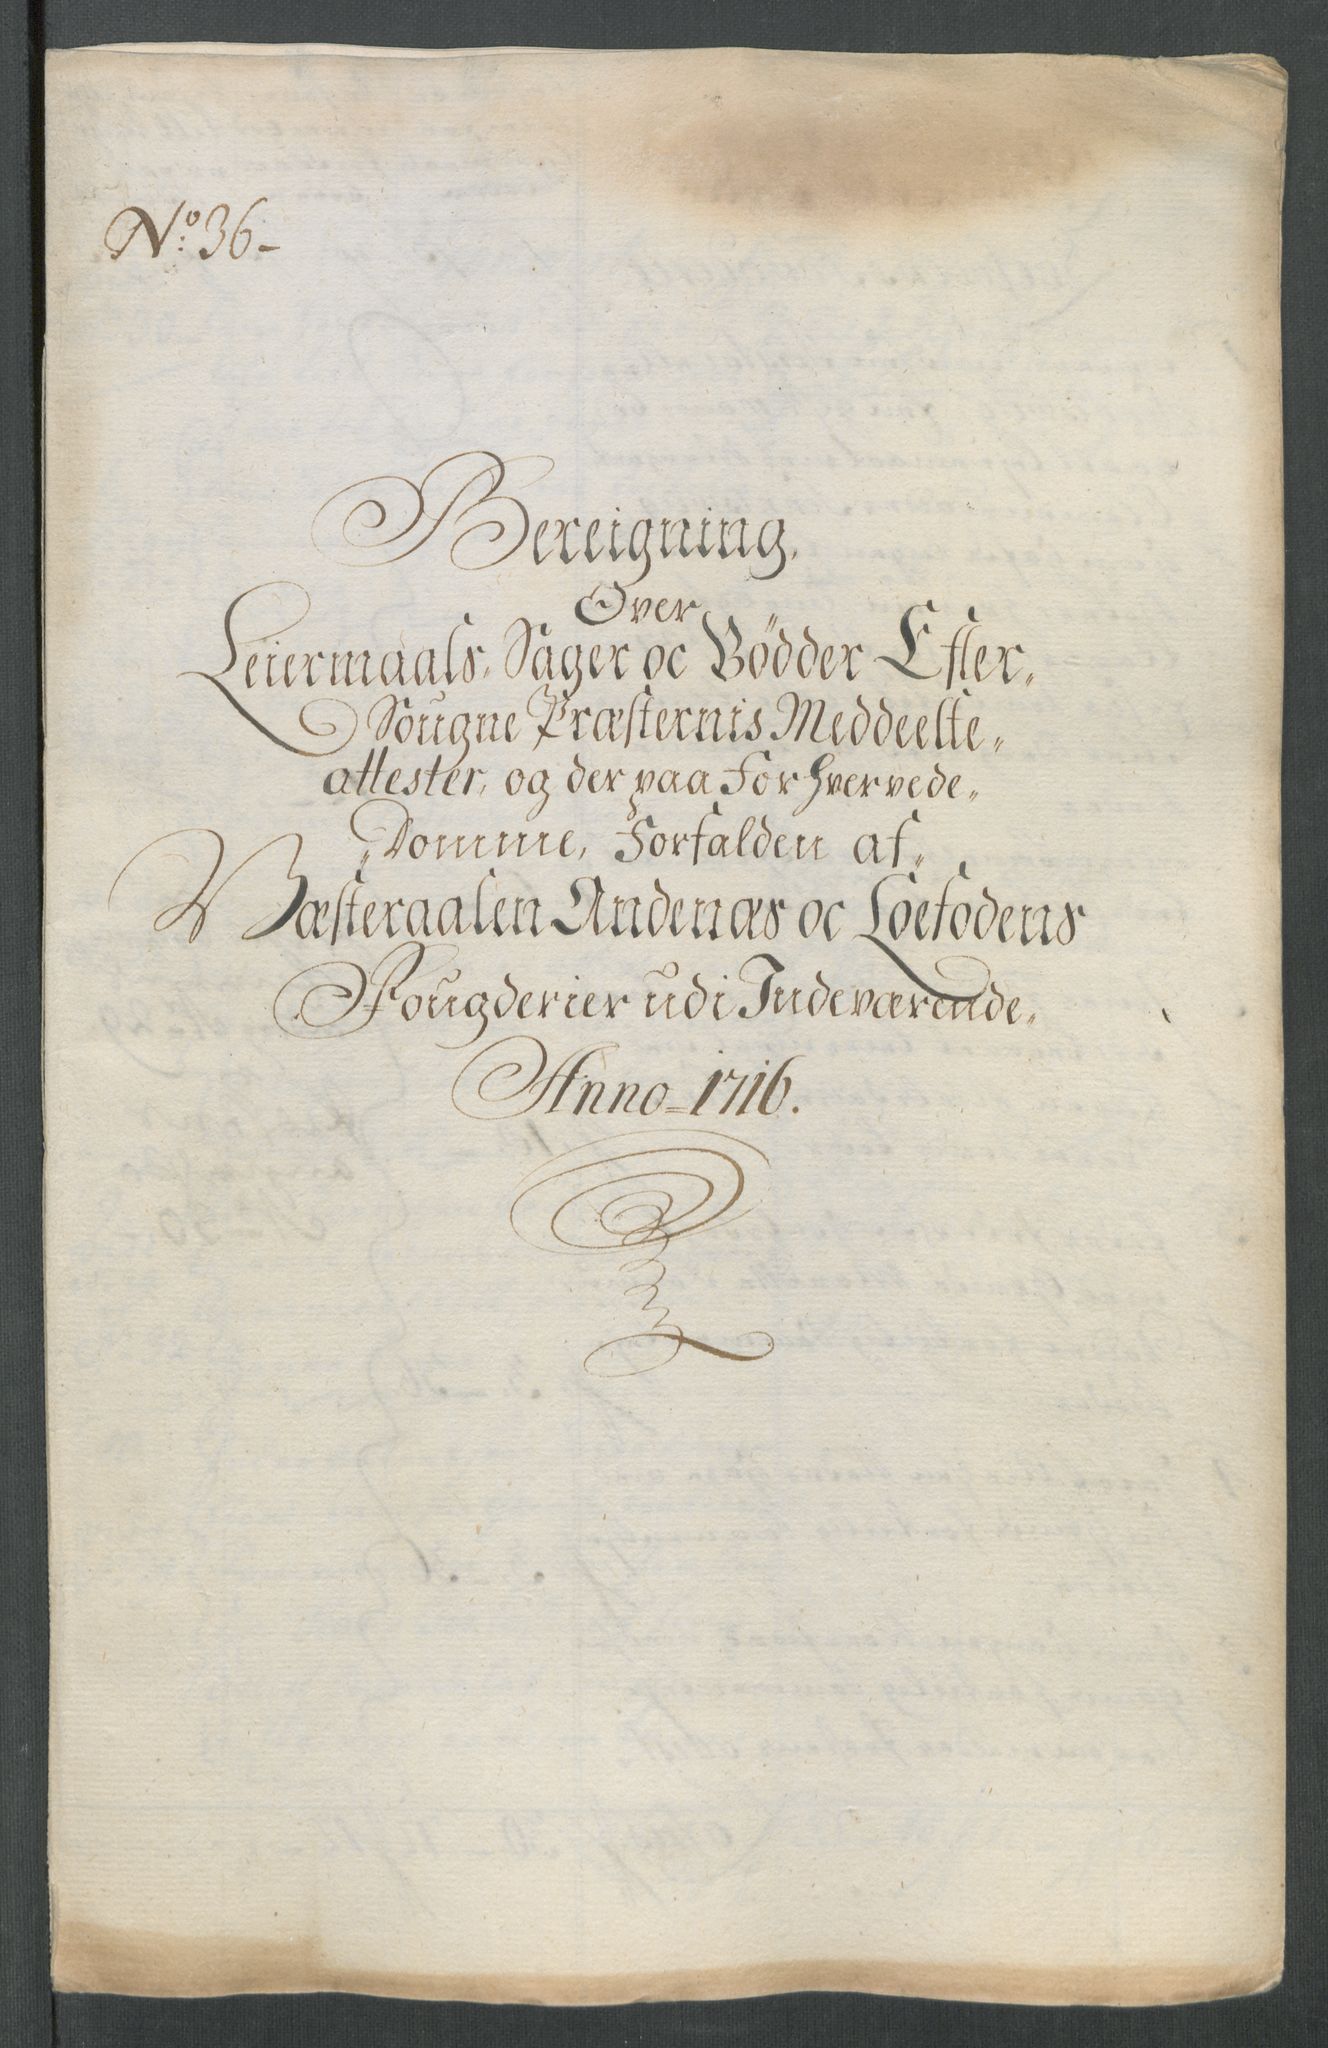 No: 36-
Bereigning,
Over
Leiermaals, Sager oc Bödder Efter,
Sougne Præsternis Meddeelte,
attester, og der paa For hvervede,
Domme, Forfalden af,
Væsteraalen Andenæs oc Loefodens
Fougderier udi Indeværende,
Anno=1716.